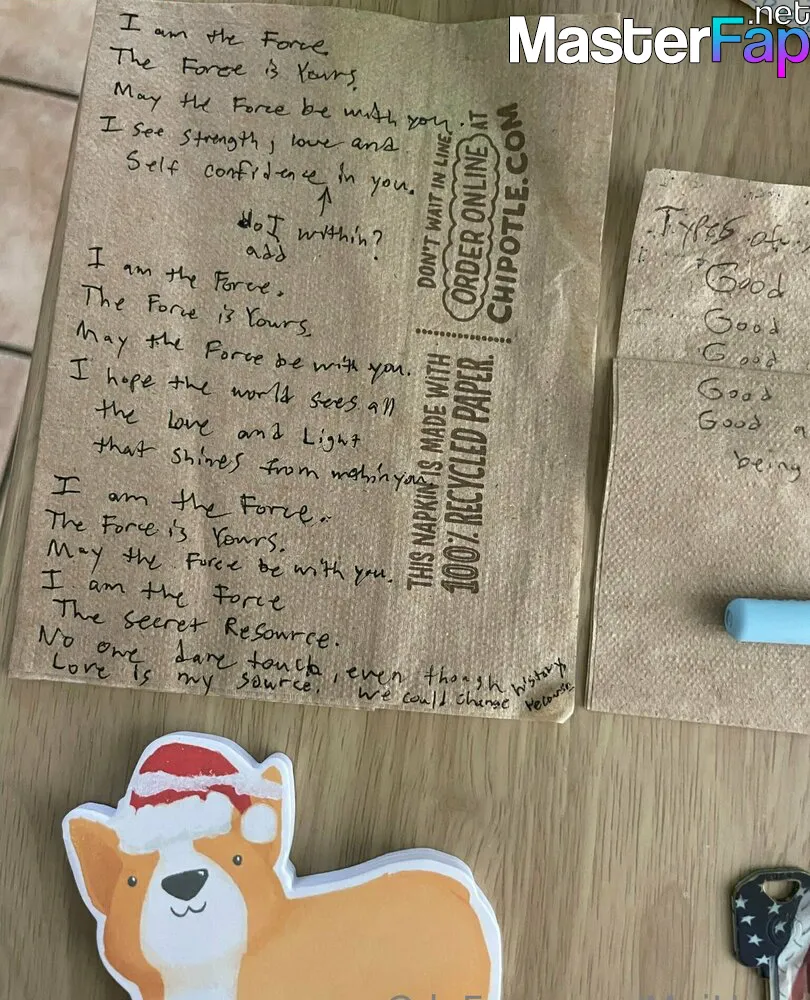 MasterFap
.net
I am the Force.
The Force is Yours.
May the Force be with you.
I see strength, love and
Self confidence in you.
do I within?
add
I am the Force.
The Force is Yours.
May the Force be with you.
I hope the world sees all
the Love and Light
that shines from within you.
I am the Force.
The Force is Yours.
May the Force be with you.
I am the Force
The Secret Resource.
No one dare touch, even though
Love is my source. we could change history
recourse
DON'T WAIT IN LINE,
ORDER ONLINE AT
CHIPOTLE.COM
THIS NAPKIN IS MADE WITH
100% RECYCLED PAPER.
Types of
Good
Good
Good
Good
Good a
being